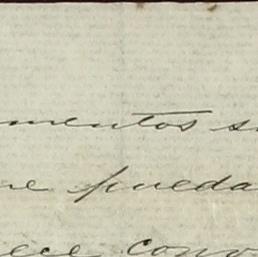 mentos s
ue pueda
ece conv